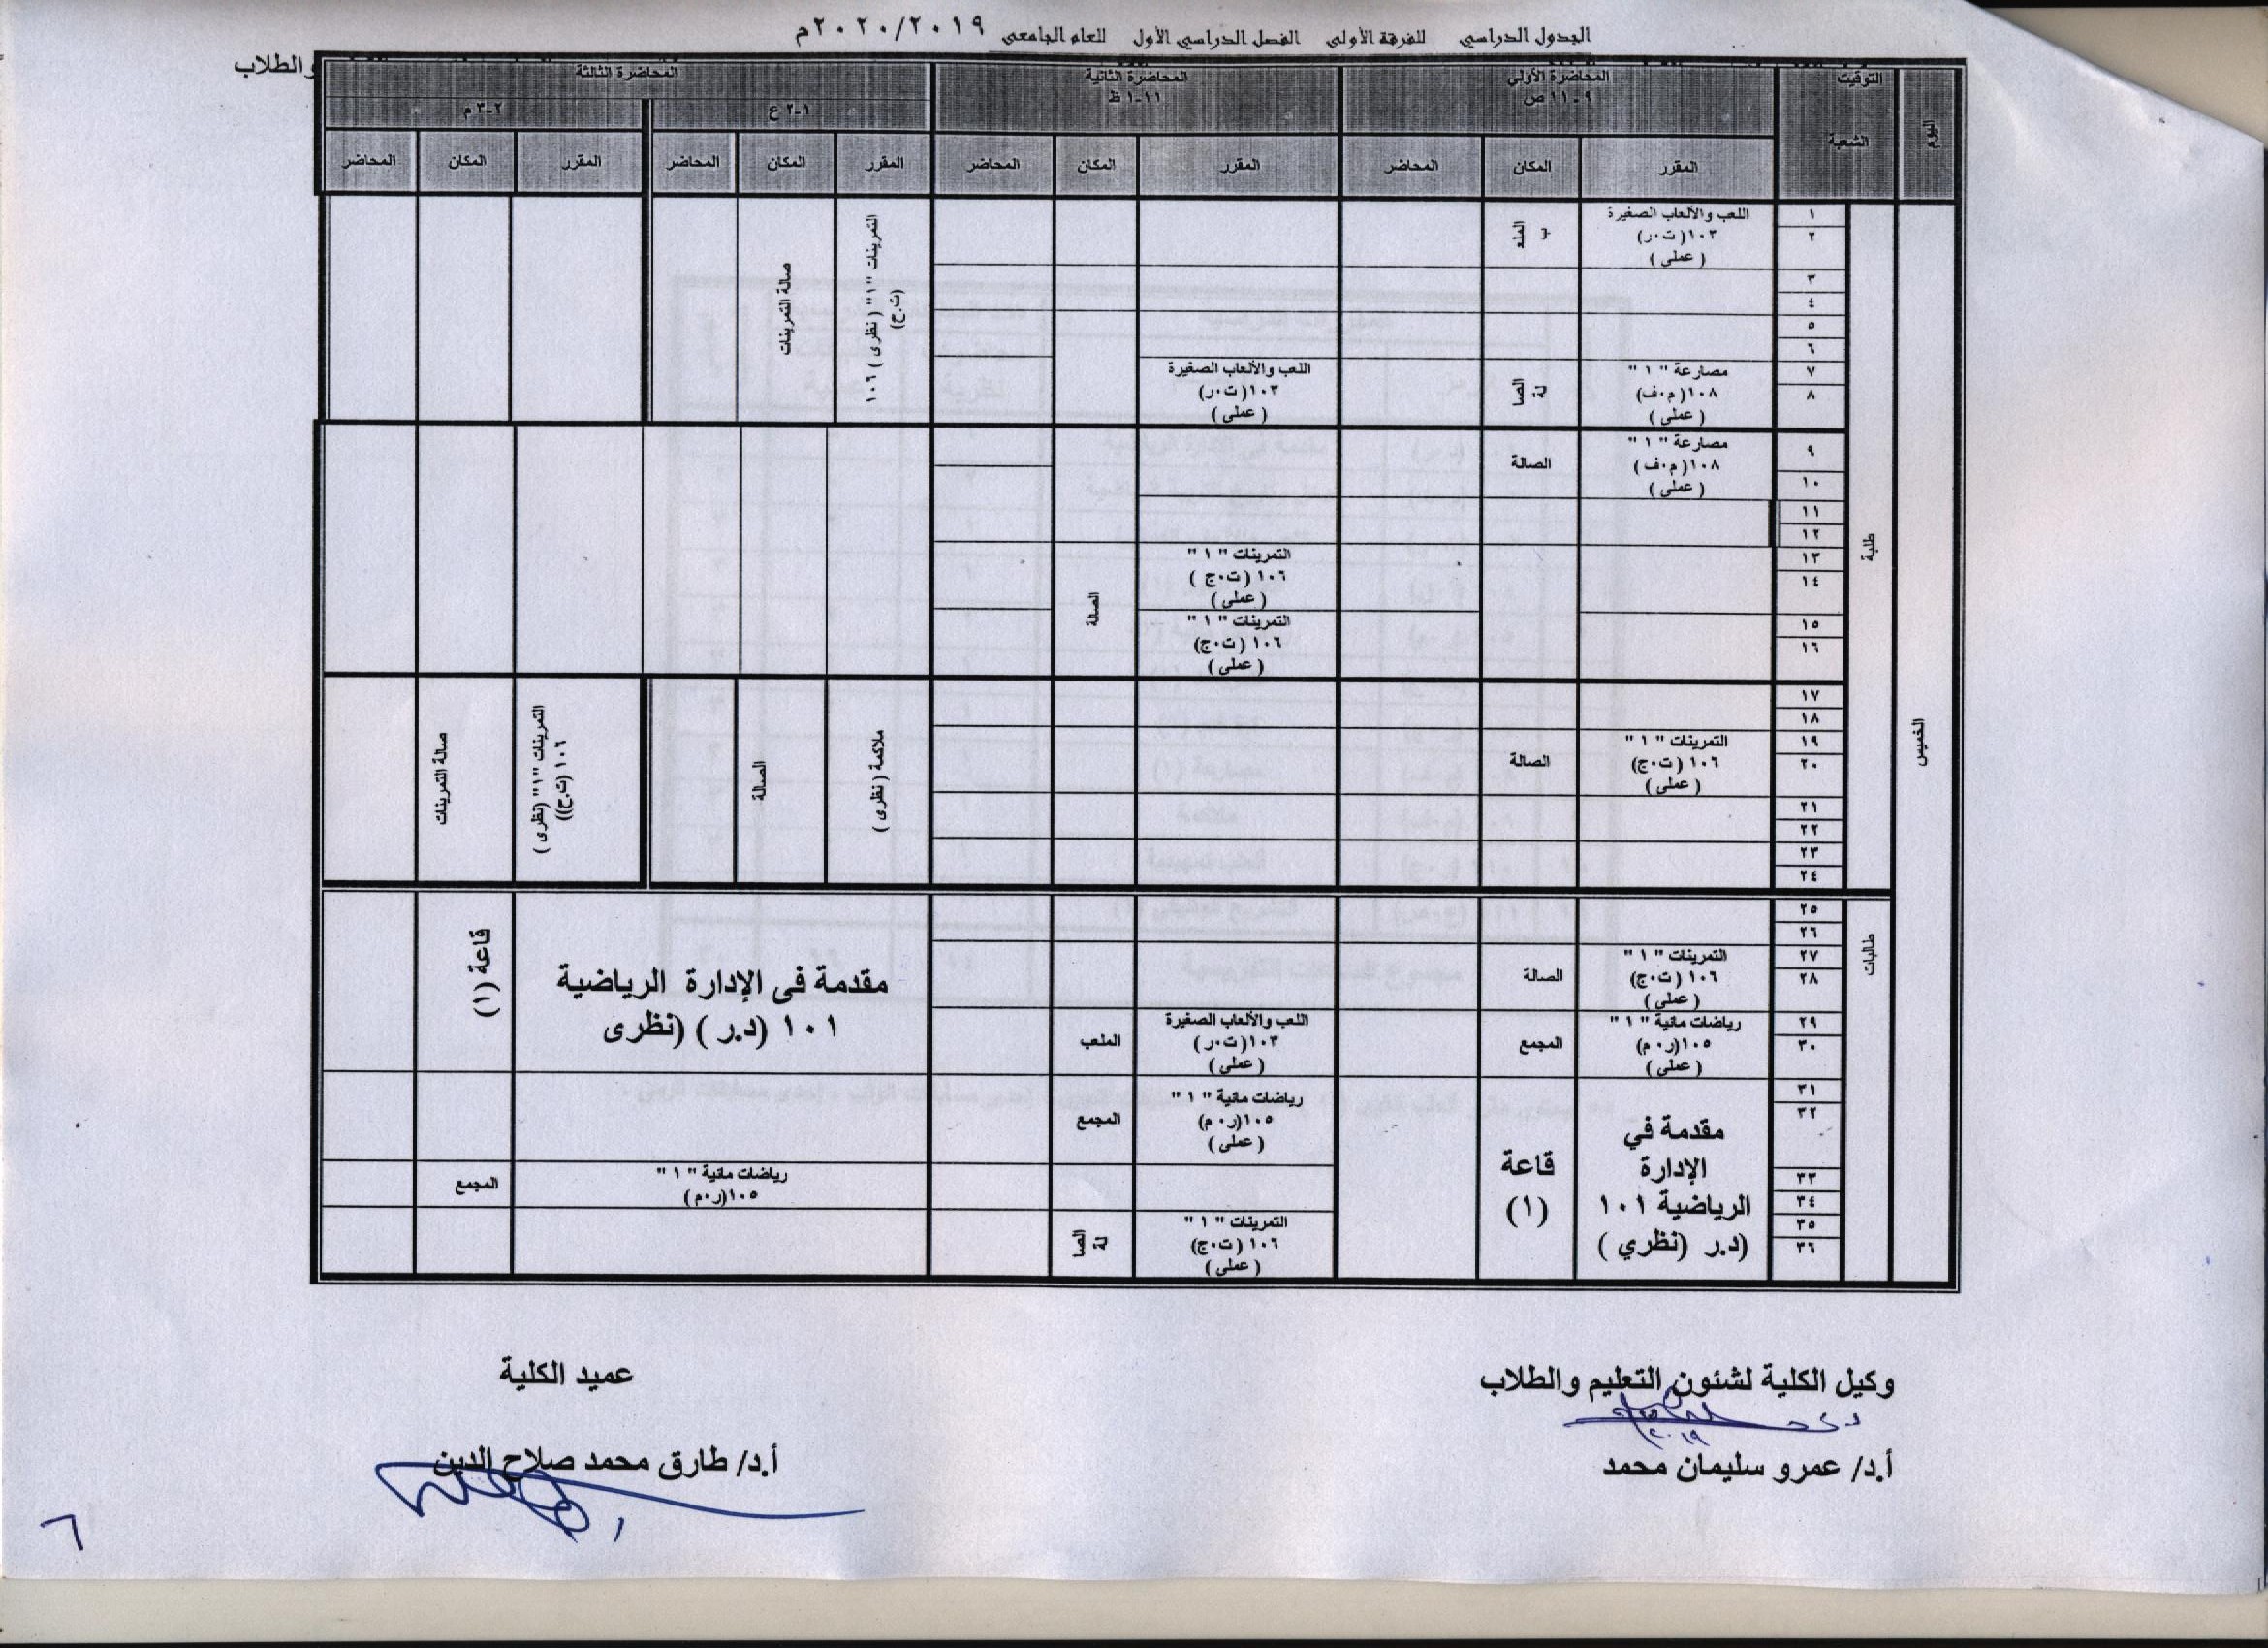 الجدول الدراسي للفرقة الأولى الفصل الدراسي الأول للعام الجامعى ٢٠٢٠/٢٠١٩م
والطلاب
اليوم
التوقيت
الشعبة
المحاضرة الأولي
٩-١١ ص
المحاضرة الثانية
١١-١ ظ
المحاضرة الثالثة
١-٢ ع
٢-٣ م
المقرر المكان المحاضر المقرر المكان المحاضر المقرر المكان المحاضر المقرر المكان المحاضر
الخميس
طلبة
١
٢
اللعب والألعاب الصغيرة
١٠٣(ت.ر)
(عملى)
الملع
ب
التمرينات "١" (نظرى) ١٠٦
(ت.ج)
صالة التمرينات
٣
٤
٥
٦
٧
٨
مصارعة "١"
١٠٨(م.ف)
(عملى)
الصا
لة
اللعب والألعاب الصغيرة
١٠٣(ت.ر)
(عملى)
٩
١٠
مصارعة "١"
١٠٨(م.ف)
(عملى)
الصالة
١١
١٢
١٣
١٤
التمرينات "١"
١٠٦ (ت.ج)
(عملى)
الصالة
١٥
١٦
التمرينات "١"
١٠٦ (ت.ج)
(عملى)
١٧
١٨
١٩
٢٠
التمرينات "١"
١٠٦ (ت.ج)
(عملى)
الصالة
ملاكمة (نظرى)
الصالة
التمرينات "١" (نظرى)
١٠٦ (ت.ج))
صالة التمرينات
٢١
٢٢
٢٣
٢٤
طالبات
٢٥
٢٦
٢٧
٢٨
التمرينات "١"
١٠٦ (ت.ج)
(عملى)
الصالة
مقدمة فى الإدارة الرياضية
١٠١ (د.ر) (نظرى
قاعة (١)
٢٩
٣٠
رياضات مائية "١"
١٠٥(ر.م)
(عملى)
المجمع
اللعب والألعاب الصغيرة
١٠٣(ت.ر)
(عملى)
الملعب
٣١
٣٢
مقدمة في
الإدارة
الرياضية ١٠١
(د.ر (نظري)
قاعة
(١)
رياضات مائية "١"
١٠٥(ر.م)
(عملى)
المجمع
٣٣
٣٤
رياضات مائية "١"
١٠٥(ر.م)
المجمع
٣٥
٣٦
التمرينات "١"
١٠٦ (ت.ج)
(عملى)
الصا
لة
وكيل الكلية لشئون التعليم والطلاب
عميد الكلية
٢٠١٩
أ.د/ عمرو سليمان محمد
أ.د/ طارق محمد صلاح الدين
٦